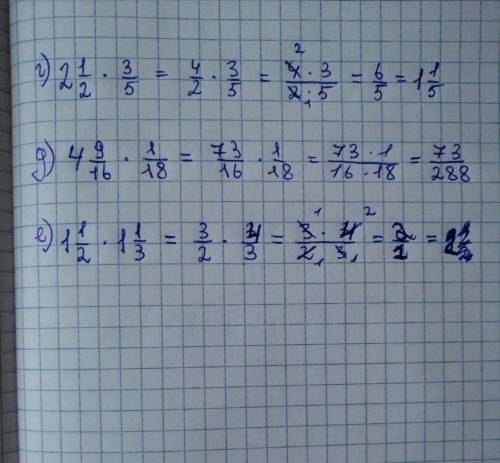 г) 2 1/2 · 3/5 = 4/2 · 3/5 = 4² · 3 / 2₁ · 5 = 6/5 = 1 1/5
д) 4 9/16 · 1/18 = 73/16 · 1/18 = 73 · 1 / 16 · 18 = 73/288
е) 1 1/2 · 1 1/3 = 3/2 · 4/3 = 3¹ · 4² / 2₁ 3₁ = 2/1 =